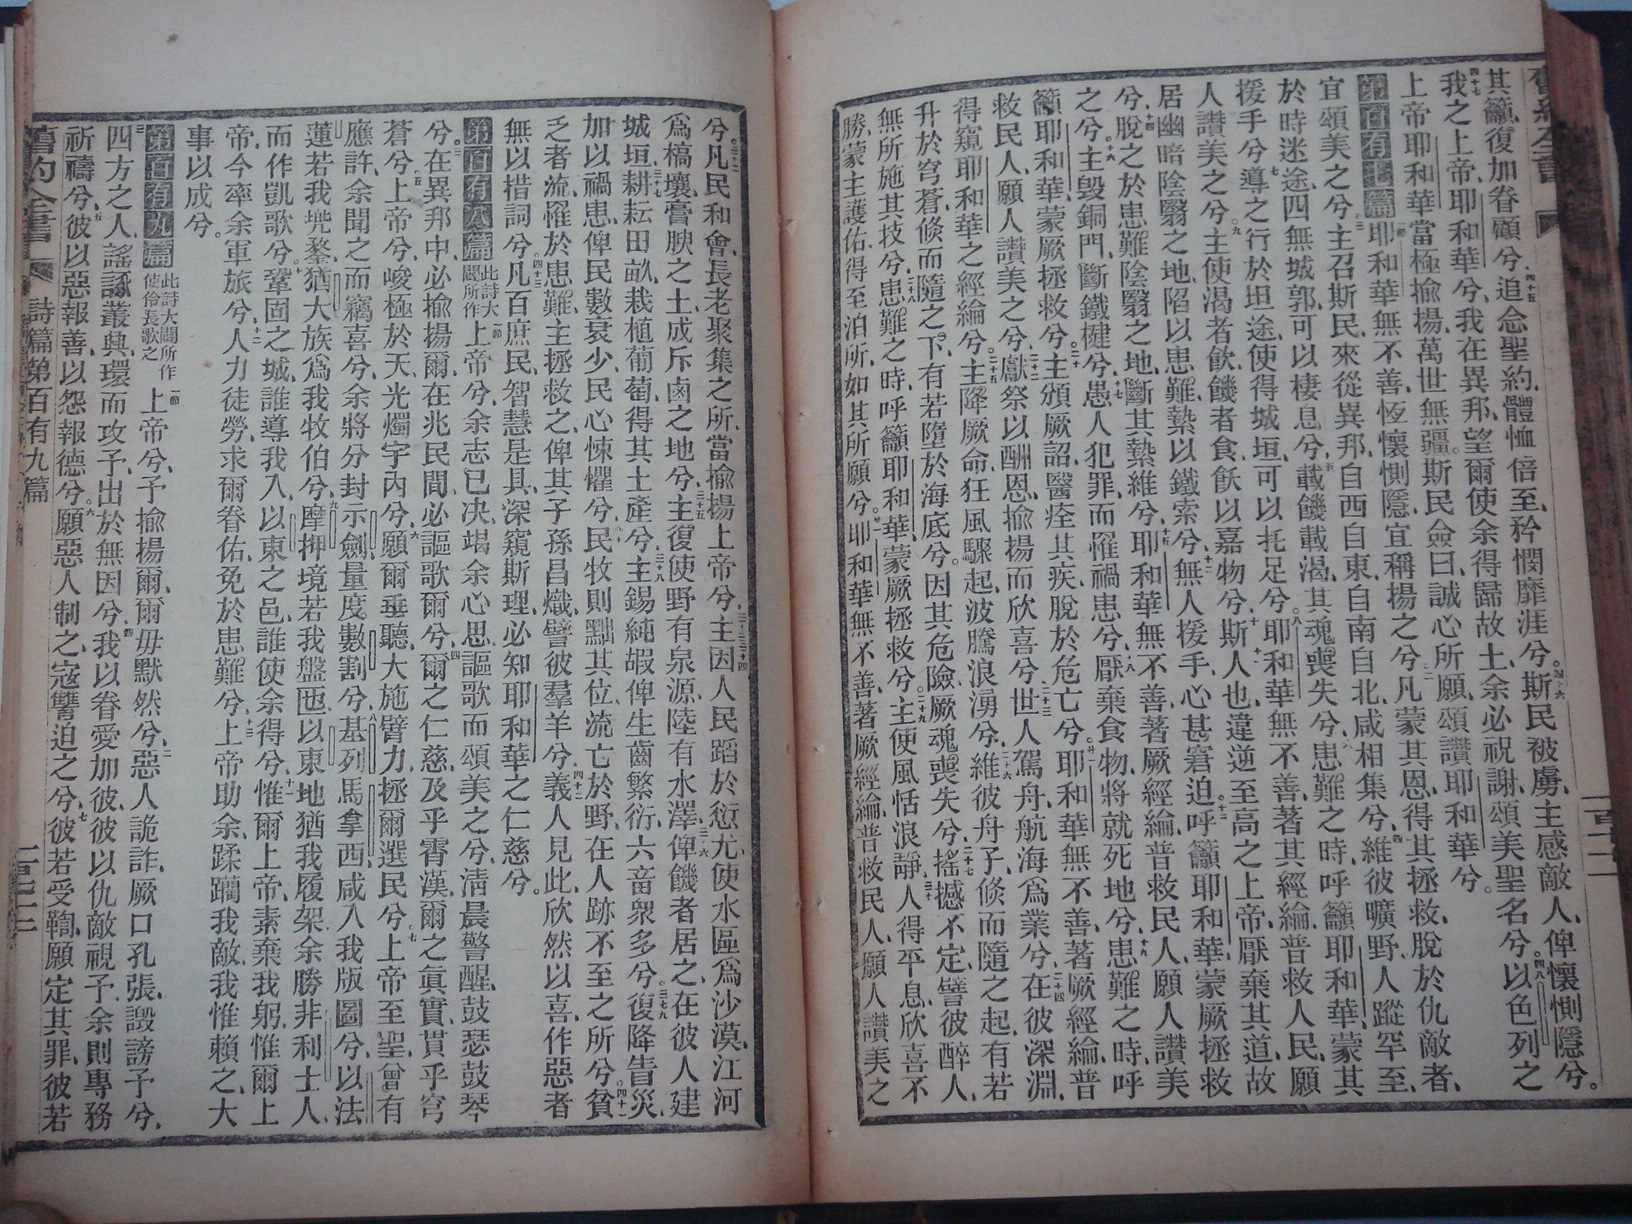 舊約全書
百二十二
其籲、復加眷顧兮、四十五追念聖約、體恤倍至、矜憫靡涯兮。四十六斯民被虜、主感敵人、俾懷惻隱兮。
四十七我之上帝耶和華兮、我在異邦、望爾使余得歸故土、余必祝謝、頌美聖名兮。四十八以色列之
上帝耶和華、當極揄揚、萬世無疆。斯民僉曰、誠心所願、頌讚耶和華兮。
第百有七篇 一節耶和華無不善、恆懷惻隱、宜稱揚之兮、二凡蒙其恩、得其拯救、脫於仇敵者、
宜頌美之兮、三主召斯民、來從異邦、自東自西自南自北、咸相集兮、四維彼曠野、人蹤罕至、
於時迷途、四無城郭、可以棲息兮、五載饑載渴、其魂喪失兮、六患難之時、呼籲耶和華、蒙其
援手兮、七導之行於坦途、使得城垣、可以托足兮、八耶和華無不善、著其經綸、普救人民、願
人讚美之兮、九主使渴者飲、饑者食、飫以嘉物兮、十斯人也、違逆至高之上帝、厭棄其道、故
居幽暗陰翳之地、陷以患難、縶以鐵索兮、十二無人援手、心甚窘迫、十三呼籲耶和華、蒙厥拯救
兮、十四脫之於患難陰翳之地、斷其縶維兮、十五耶和華無不善、著厥經綸、普救民人、願人讚美
之兮、十六主毀銅門、斷鐵楗兮、十七愚人犯罪、而罹禍患兮、十八厭棄食物、將就死地兮、十九患難之時、呼
籲耶和華、蒙厥拯救兮、二十主頒厥詔、醫痊其疾、脫於危亡兮。耶和華無不善、著厥經綸、普
救民人、願人讚美之兮、二十二獻祭以酬恩、揄揚而欣喜兮、二十三世人駕舟航海為業兮、二十四在彼深淵、
得窺耶和華之經綸兮。二十五主降厥命、狂風驟起、波騰浪湧兮、二十六維彼舟子、倏而隨之起、有若
升於穹蒼、倏而隨之下、有若墮於海底兮。因其危險、厥魂喪失兮、二十七搖撼不定、譬彼醉人、
無所施其技兮、二十八患難之時、呼籲耶和華、蒙厥拯救兮、二十九主使風恬浪靜、三十人得平息、欣喜不
勝、蒙主護佑、得至泊所、如其所願兮。耶和華無不善、著厥經綸、普救民人、願人讚美之
兮。三十二凡民和會、長老聚集之所、當揄揚上帝兮、三十三三十四主因人民蹈於愆尤、使水區為沙漠、江河
為槁壤、膏腴之土、成斥鹵之地兮、三十五主復使野有泉源、陸有水澤、三十六俾饑者居之、在彼人建
城垣、三十七耕耘田畝、栽植葡萄、得其土產兮、三十八主錫純嘏、俾生齒繁衍、六畜衆多兮、三十九復降眚災、
加以禍患、俾民數衰少、民心悚懼兮、四十民牧則黜其位、流亡於野、在人跡不至之所兮。四十一貧
乏者流、罹於患難、主拯救之、俾其子孫昌熾、譬彼羣羊兮、四十二義人見此、欣然以喜、作惡者
無以措詞兮、四十三凡百庶民、智慧是具、深窺斯理、必知耶和華之仁慈兮。
第百有八篇 此詩大闢所作 一節上帝兮、余志已決、竭余心思、謳歌而頌美之兮、二淸晨警醒、鼓瑟鼓琴
兮、三在異邦中、必揄揚爾、在兆民間、必謳歌爾兮、四爾之仁慈、及乎霄漢、爾之眞實、貫乎穹
蒼兮、五上帝兮、峻極於天、光燭宇內兮、六願爾垂聽、大施臂力、拯爾選民兮、七上帝至聖、曾有
應許、余聞之而竊喜兮、余將分封示劍、量度數割兮、八基列馬拿西、咸入我版圖兮、以法
蓮若我兜鍪、猶大族為我牧伯兮、九摩押境若我盤匜、以東地猶我履架、余勝非利士人、
而作凱歌兮、十鞏固之城、誰導我入、以東之邑、誰使余得兮、十一惟爾上帝、素棄我躬、惟爾上
帝、今率余軍旅兮、十二人力徒勞、求爾眷佑、免於患難兮、十三上帝助余、蹂躪我敵、我惟賴之、大
事以成兮。
第百有九篇 此詩大闢所作使伶長歌之 一節上帝兮、予揄揚爾、爾毋默然兮、二惡人詭詐、厥口孔張、譭謗予兮、
三四方之人、謠諑叢興、環而攻予、出於無因兮、四我以眷愛加彼、彼以仇敵視予、余則專務
祈禱兮、五彼以惡報善、以怨報德兮。六願惡人制之、寇讐迫之兮、七彼若受鞫、願定其罪、彼若
舊約全書
詩篇第百有九篇
二百二十三